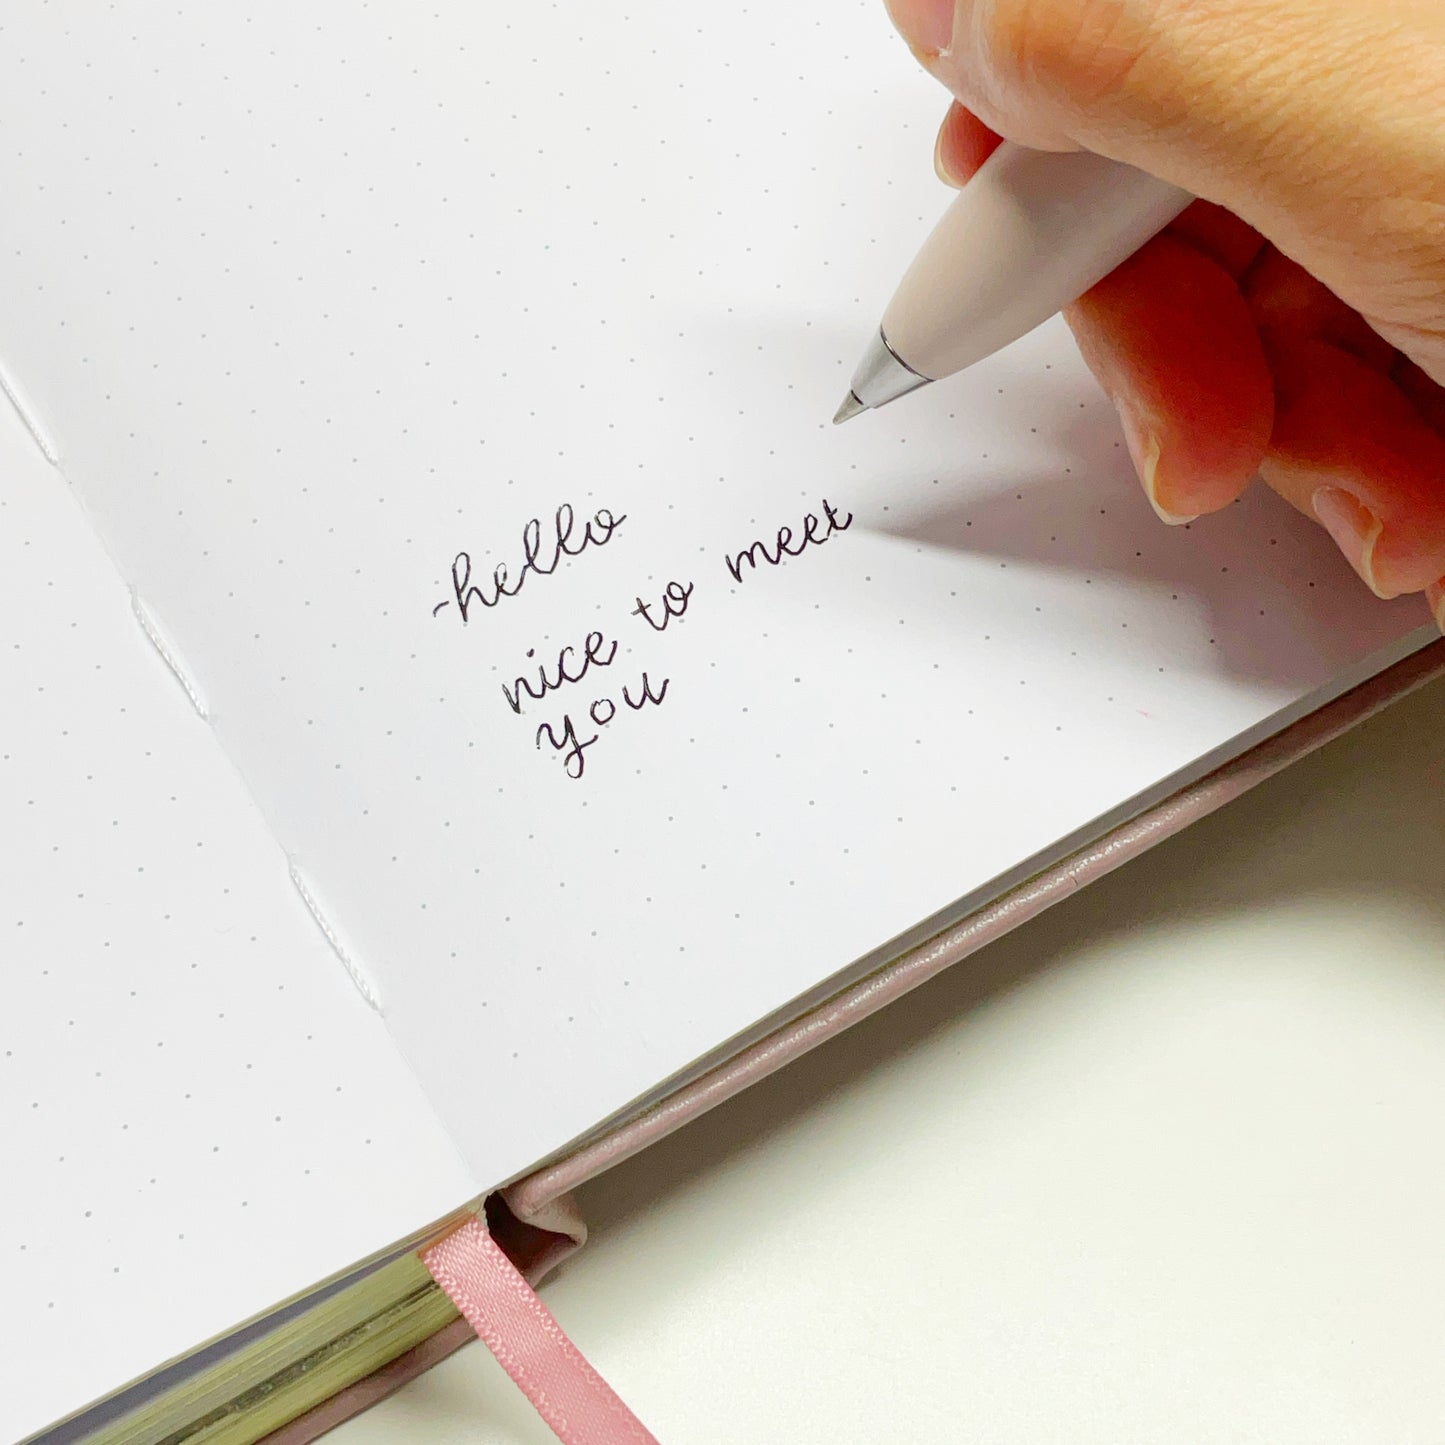 -hello
nice to meet
you